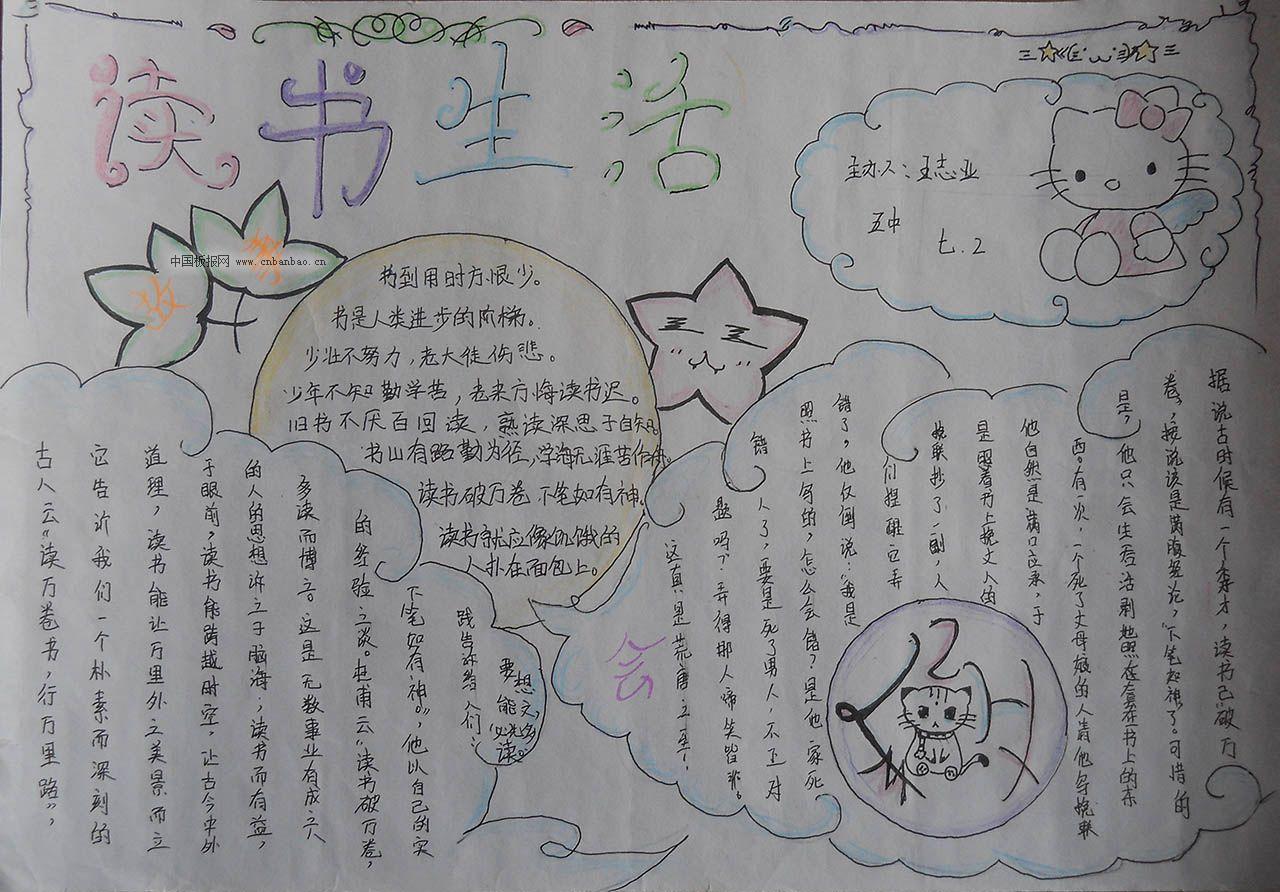 读书生活
三☆〈(三˙ω˙三)〉☆三
主办人:王志业
五中
七.2
中国板报网 www.cnbanbao.cn
书到用时方恨少。
书是人类进步的阶梯。
少壮不努力,老大徒伤悲。
少年不知勤学苦,老来方悔读书迟。
旧书不厌百回读,熟读深思子自知。
书山有路勤为径,学海无涯苦作舟。
读书破万卷 下笔如有神。
读书就应像饥饿的
人扑在面包上。
据说古时候有一个秀才,读书已破万
卷,按说该是满腹经纶,下笔如神了。可惜的
是,他只会生吞活剥
书上的东
西,有一次,一个死了丈母娘的人请他写挽联
他自然是满口应承,于
是照着书上挽丈人的
挽联抄了一副,人
们提醒它弄
错了,他仅倒说:"我是
照书上写的,怎么会错?是他家死
错人了,要是死了男人,不正对
题吗?弄得那人啼笑皆非。
这真是荒唐之至!
会
古人云"读万卷书,行万里路",
它告诉我们一个朴素而深刻的
道理,读书能让万里外之美景而立
于眼前,读书能跨越时空,让古今中外
的人的思想许立于脑海,读书而有益,
多读而博言。这是无数事业有成之人
的经验之谈。杜甫云"读书破万卷,
下笔如有神。",他以自己的实
践告诉给人们:
要想
能文,
必先
读。